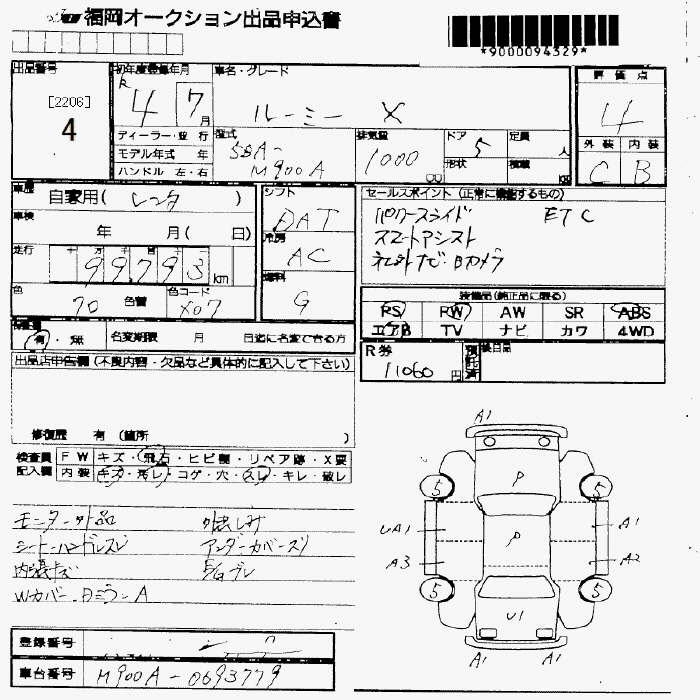 福岡オークション出品申込書
*9000094329*
出品番号 初年度登録年月 車名・グレード 評価点
[2206]
4
R 4 7月 ルーミー X 4
ディーラー・並行 型式 排気量 ドア 定員 外装 内装
モデル年式 年 5BA- 1000 cc 5 人 C B
ハンドル 左・右 M900A 形状 積載 KG
車歴 自家用( レンタ ) シフト セールスポイント(正常に機能するもの)
車検 年 月( 日) DAT パワースライド ETC
冷房 スマートアシスト
走行 十 万 千 百 十 一 AC ネット ナビ・Bカメラ
99793 km 燃料
色 70 色替 色コード X07 G
装備品(純正品に限る)
PS PW AW SR ABS
エアB TV ナビ カワ 4WD
有・無 名変期限 月 日迄に名変できる方
R券 11060円 預託済 後日品
出品店申告欄(不良内容・欠品など具体的に記入して下さい)
修復歴 有(箇所 )
検査員 FW キズ・飛石・ヒビ割・リペア跡・X要
記入欄 内装 キズ・汚レ・コゲ・穴・スレ・キレ・破レ
モニター外品
シート・ハンドルスレ アンダーカバースリ
内装キズ
Wカバー・Bミラー A
A1
5 P 5
UA1 P A1
A3 A2
5 U1 5
A1 A1
登録番号
車台番号 M900A-0693779